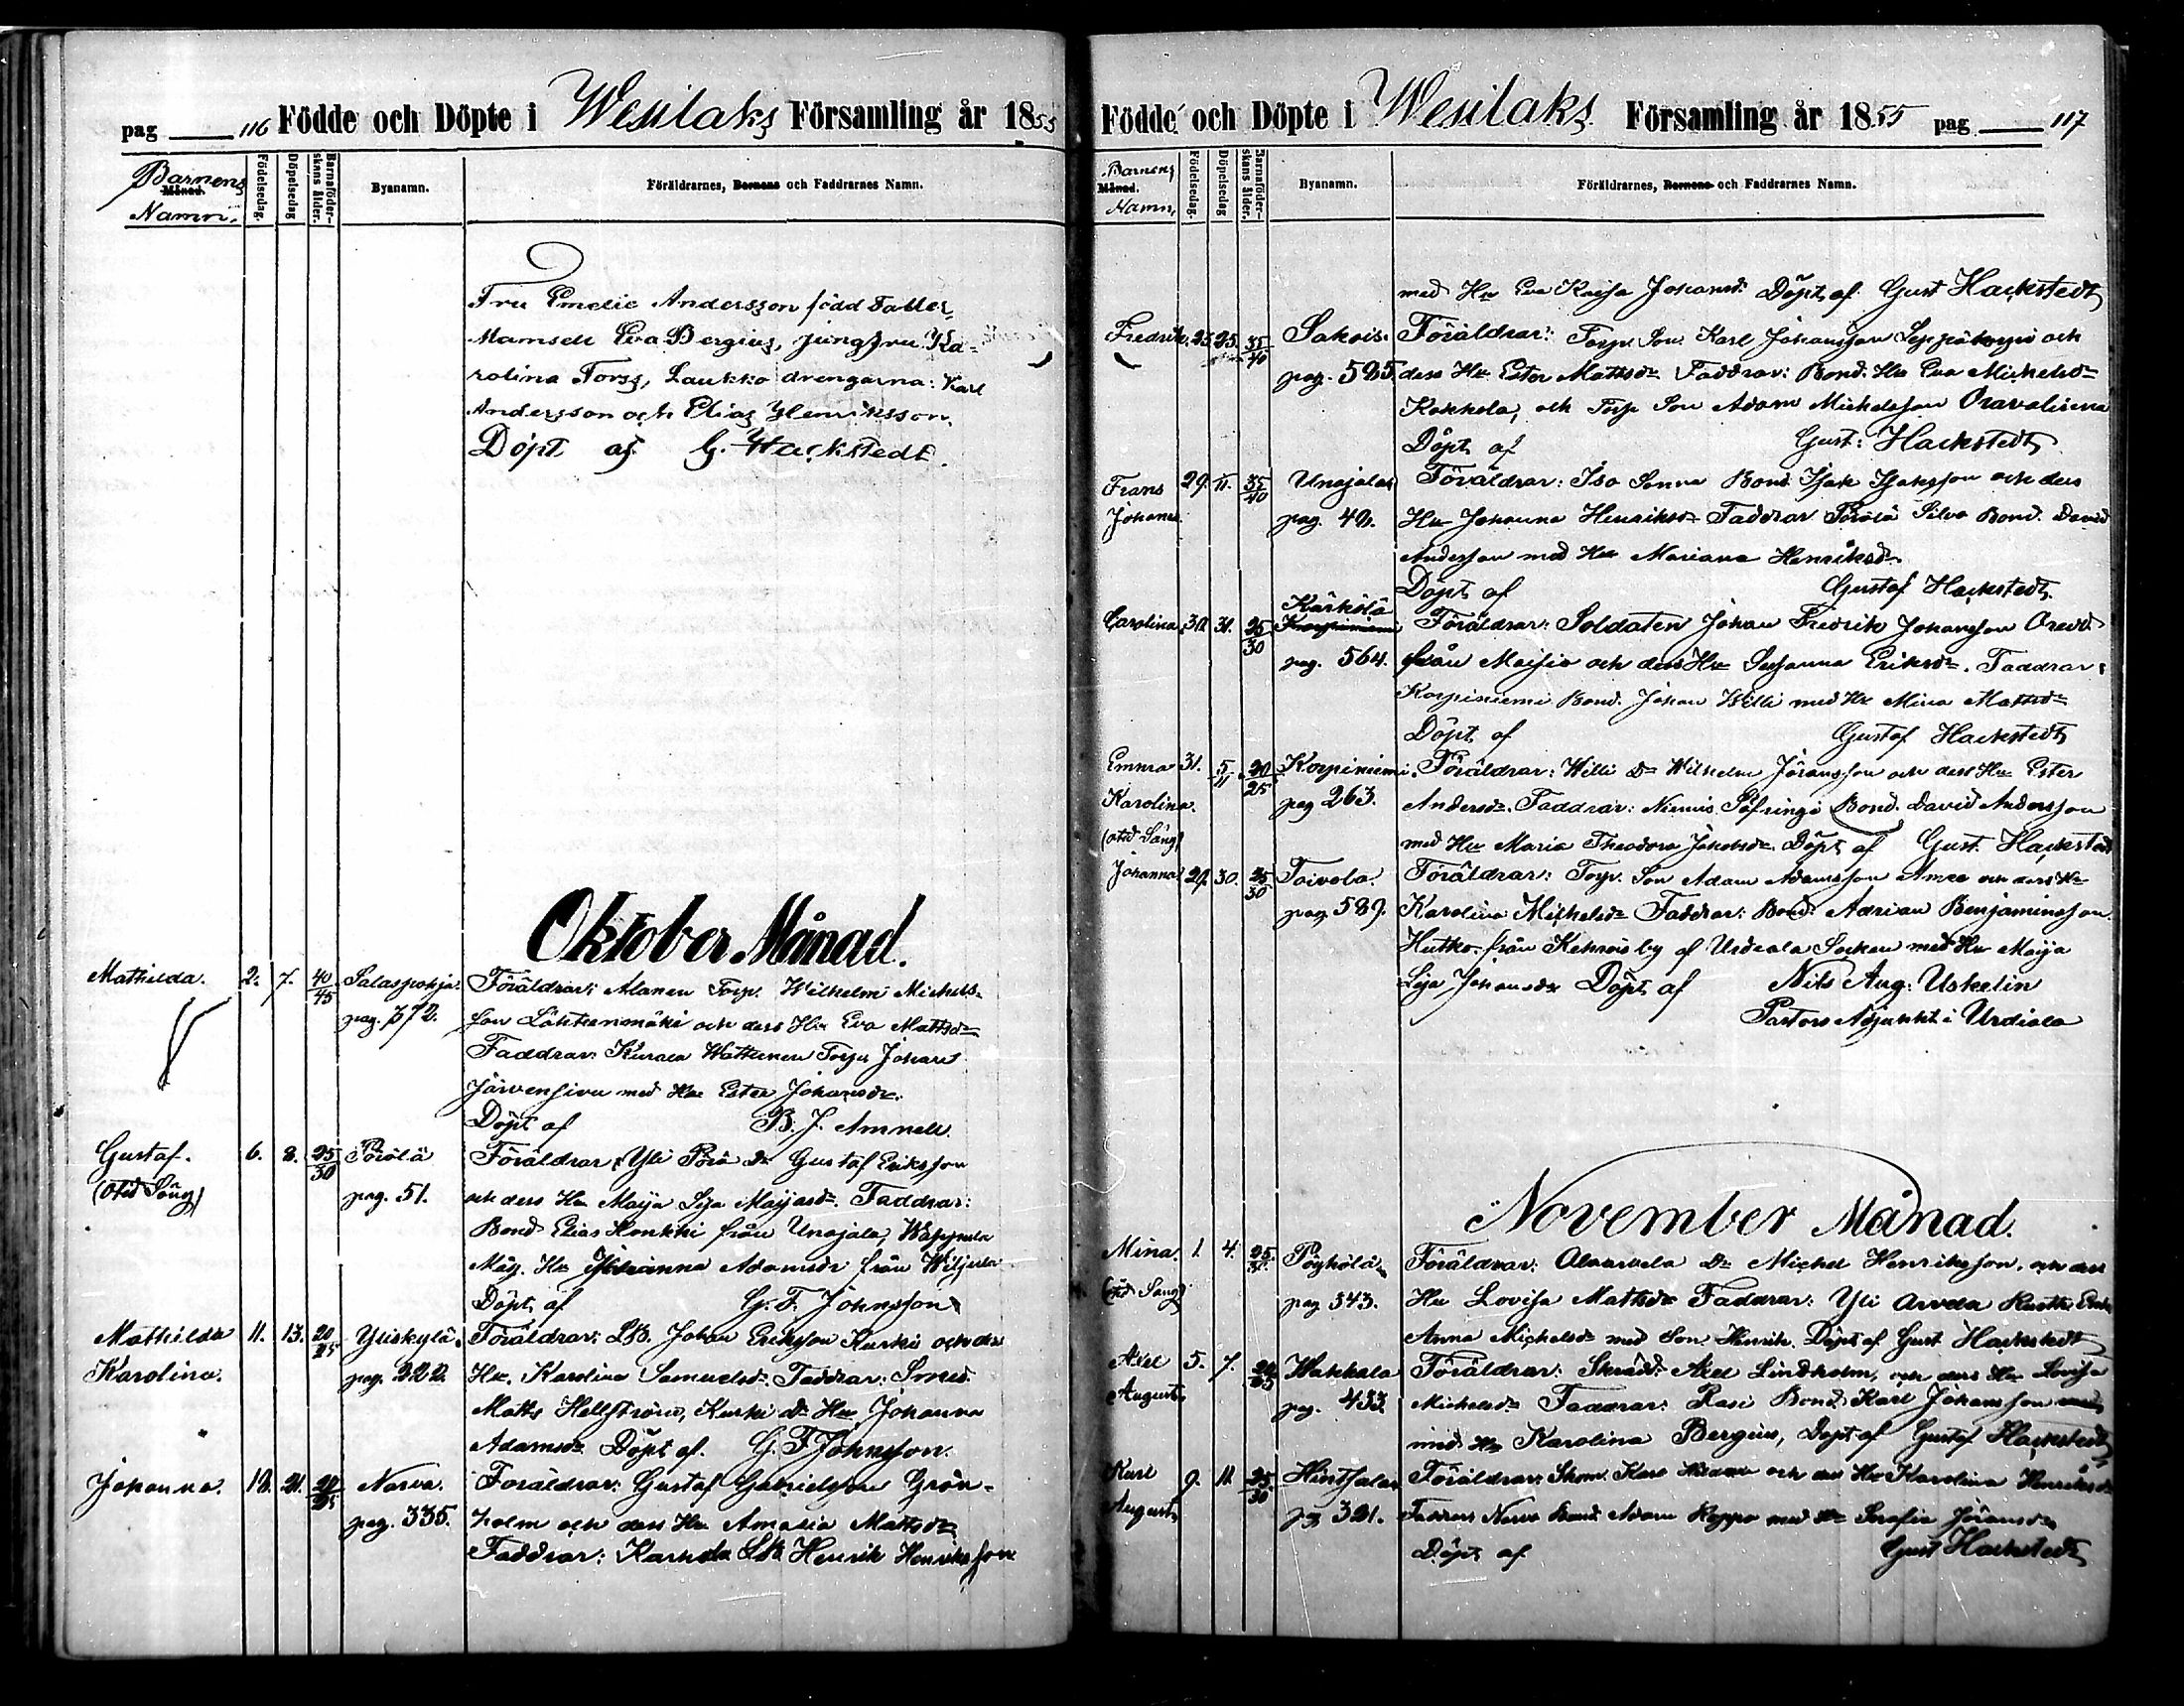 pag 116 Födde och Döpte i Wesilaks Församling år 1855
Barnens
Månad.
Namn.
Födelsedag.
Döpelsedag
Barnaföder-
skans ålder.
Byanamn.
Föräldrarnes, Barnens och Faddrarnes Namn.
Fru Emelie Andersson född Faller,
Mamsell Eva Bergius, jungfru Ka-
rolina Forss, Laukko drengarna: Karl
Andersson och Elias Henriksson.
Döpt af G. Hackstedt.
Oktober Månad.
Mathilda. 2. 7. 40/45 Salaspohja. Föräldrar: Alanen Torp. Wilhelm Michels-
pag. 572. son och dess Hu Eva Mattsdr
Faddrar: Kurala Torp Johan
Järvensivu med Hu Ester Johansdr.
Döpt af B. J. Amnell.
Gustaf. 6. 8. 25/30 Pörölä Föräldrar: Yli Pörö Dr Gustaf Eriksson
(oted Sång) pag. 51. och dess Hu Maija Lisa Faddrar:
Bond Elias Honkki från Unajala,
Måg. Hu Adamsdr från
Döpt af G. F. Johnsson
Mathilda 11. 13. 20/25 Yliskylä. Föräldrar: Johan Eriksson Kurki och dess
Karolina. pag. 222. Hu. Karolina Samuelsdr. Faddrar: Smed.
Matts Hellström, Kurki Dr Hu Johanna
Adamsdr Döpt af. G. F Johnsson.
Johanna. 18. 21. 20/25 Narva. Föräldrar: Gustaf Gabrielsson Grön-
pag. 335. holm och dess Hu. Amalia Mattsdr
Faddrar: Henrik Henriksson
Födde och Döpte i Wesilaks Församling år 1855 pag 117
Barnens
Månad.
Namn,
Födelsedag.
Döpelsedag
Barnaföder-
skans ålder.
Byanamn.
Föräldrarnes, Barnens och Faddrarnes Namn.
med Hu Eva Kaisa Johansdr Döpt af Gust Hackstedt
Fredrik. 25. 25. 35/40 Sakois. Föräldrar: Torp. Son Karl Johansson Seppäkorpi och
pag. 595. dess Hu Ester Mattsdr Faddrar: Bond. Hu Eva Michelsdr
Kokkola, och Torp Son Adam Michelsson
Döpt af Gust: Hackstedt
Frans 29. 11. 35/40 Unajala Föräldrar: Iso Sonna Bond Isak Isaksson och dess
Johan. pag. 42. Hu Johanna Henriksdr Faddrar Pörölä Silvo Bond. David
Andersson med Hu Mariana Henriksdr
Döpt af Gustaf Hackstedt.
Kärkölä
Carolina. 30. 31. 25/30 Korpiniemi Föräldrar: Soldaten Johan Fredrik Johansson
pag. 564. från och dess Hu Susanna Eriksdr. Faddrar:
Korpiniemi Bond. Johan Willi med Hu Mina Mattsdr
Döpt af Gustaf Hackstedt
Emma 31. 5/11 20/25 Korpiniemi. Föräldrar: Willi Dr Wilhelm Göransson och dess Hu Ester
Karolina. pag 263. Andersdr. Faddrar: Niemis Söfringi Bond. David Andersson
(oted Sång) med Hu Maria Theodora Jakobsdr Döpt af Gust. Hackstedt
Johanna. 29. 30. 25/30 Toivola. Föräldrar: Torp. Son Adam Adamsson och dess Hu
pag. 589. Karolina Michelsdr Faddrar: Bond. Adrian Benjaminsson
Hutko från by af Urdiala Socken med Hu Maija
Lisa Johansdr Döpt af Nils Aug: Uskelin
Pastors Adjunkt i Urdiala
November Månad.
Mina. 1. 4. 25/30 Pöyhölä Föräldrar: Dr Michel Henriksson, och dess
(oted Sång) pag 343. Hu Lovisa Mattsdr Faddrar: Yli Arvela
Anna Michelsdr med Son Henrik. Döpt af Gust Hackstedt
Axel 5. 7. Wakkala Föräldrar: Skrädd. Axel Lindholm, och dess Hu Lovisa
August pag. 433. Michelsdr Faddrar: Rasi Bond. Karl Johansson
med Hu Karolina Bergius, Döpt af Gustaf Hackstedt
Karl 9. 11. 25/30 Hintsala Föräldrar: Skom. Karl och dess Hu Karolina Henriksdr
August pag 321. Faddrar Narva Bond Adam Roppo med Hu Serafia Göransdr
Döpt af Gust Hackstedt